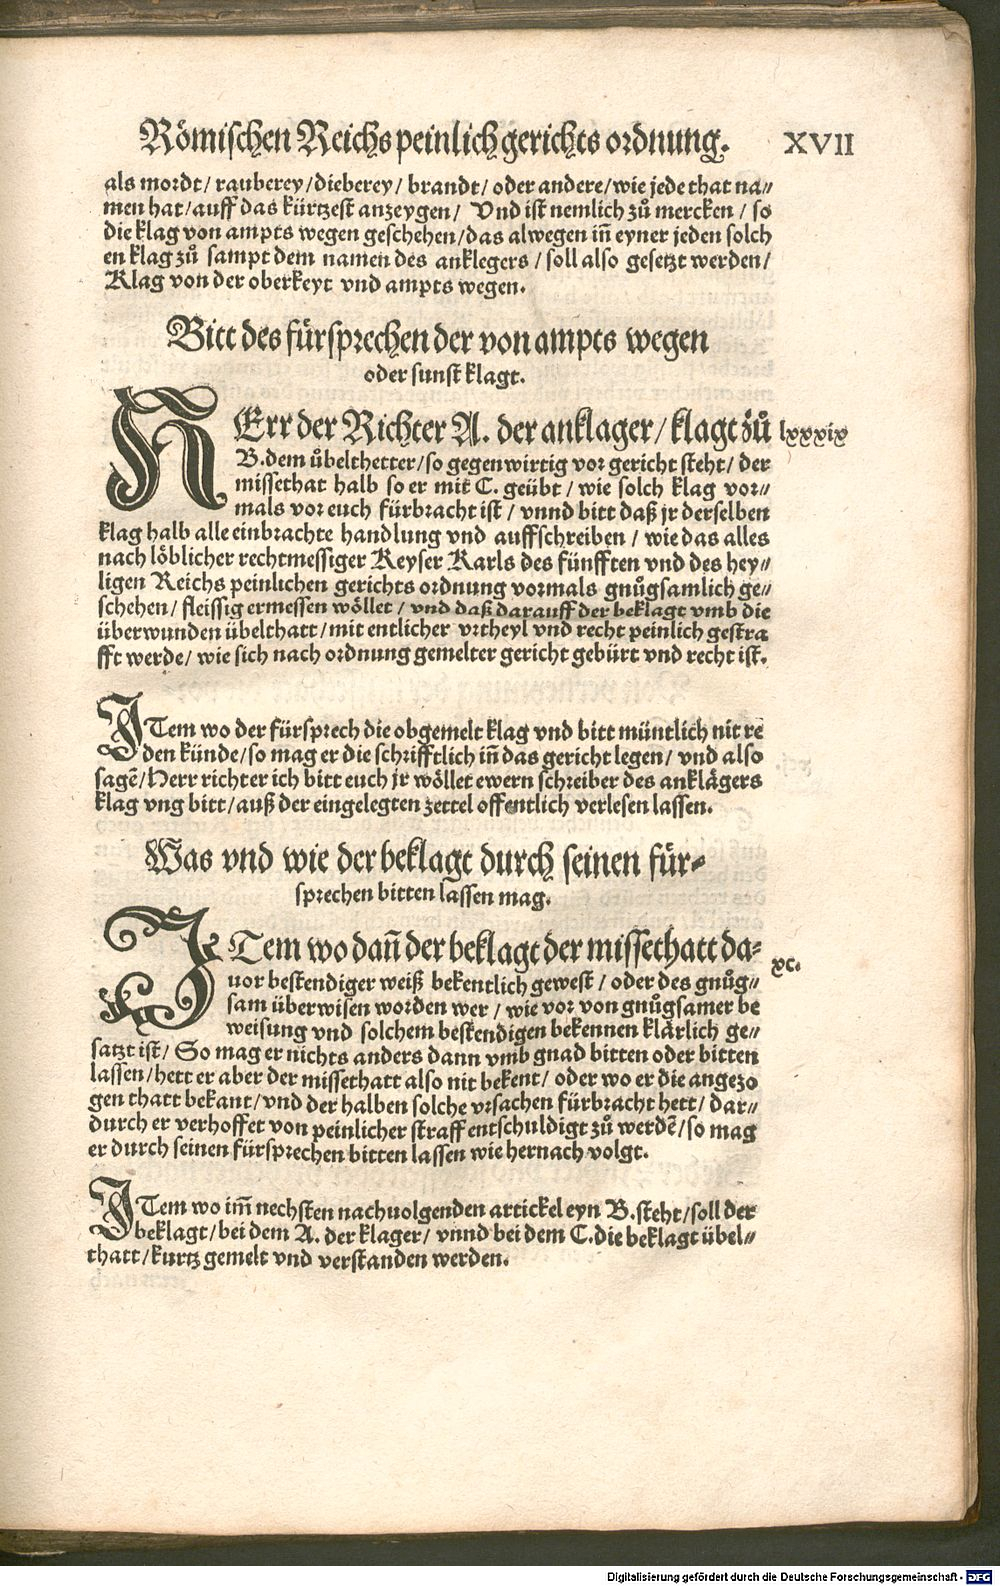 Römischen Reichs peinlich gerichts ordnung. XVII
als mordt / rauberey / dieberey / brandt / oder andere / wie jede that na⸗
men hat / auff das kürtzest anzeygen / Vnd ist nemlich zů mercken / so
die klag von ampts wegen geschehen / das alwegen iñ eyner jeden solch
en klag zů sampt dem namen des anklegers / soll also gesetzt werden /
Klag von der oberkeyt vnd ampts wegen.
Bitt des fürsprechen der von ampts wegen
oder sunst klagt.
HErr der Richter A. der anklager / klagt zů lxxxix
B. dem übelthetter / so gegenwirtig vor gericht steht / der
missethat halb so er mit C. geübt / wie solch klag vor⸗
mals vor euch fürbracht ist / vnnd bitt daß jr derselben
klag halb alle einbrachte handlung vnd auffschreiben / wie das alles
nach löblicher rechtmessiger Keyser Karls des fünfften vnd des hey⸗
ligen Reichs peinlichen gerichts ordnung vormals gnůgsamlich ge⸗
schehen / fleissig ermessen wöllet / vnd daß darauff der beklagt vmb die
überwunden übelthatt / mit entlicher vrtheyl vnd recht peinlich gestra
fft werde / wie sich nach ordnung gemelter gericht gebürt vnd recht ist.
ITem wo der fürsprech die obgemelt klag vnd bitt müntlich nit re
den künde / so mag er die schrifftlich iñ das gericht legen / vnd also
sagē / Herr richter ich bitt euch jr wöllet ewern schreiber des anklägers
klag vng bitt / auß der eingelegten zettel offentlich verlesen lassen.
Was vnd wie der beklagt durch seinen für⸗
sprechen bitten lassen mag.
ITem wo dañ der beklagt der missethatt da⸗ xc.
uor bestendiger weiß bekentlich gewest / oder des gnůg⸗
sam überwisen worden wer / wie vor von gnůgsamer be
weisung vnd solchem bestendigen bekennen klärlich ge⸗
satzt ist / So mag er nichts anders dann vmb gnad bitten oder bitten
lassen / hett er aber der missethatt also nit bekent / oder wo er die angezo
gen thatt bekant / vnd der halben solche vrsachen fürbracht hett / dar⸗
durch er verhoffet von peinlicher straff entschuldigt zů werdē / so mag
er durch seinen fürsprechen bitten lassen wie hernach volgt.
ITem wo im̃ nechsten nachuolgenden artickel eyn B. steht / soll der
beklagt / bei dem A. der klager / vnnd bei dem C. die beklagt übel⸗
thatt / kurtz gemelt vnd verstanden werden.
Digitalisierung gefördert durch die Deutsche Forschungsgemeinschaft - DFG